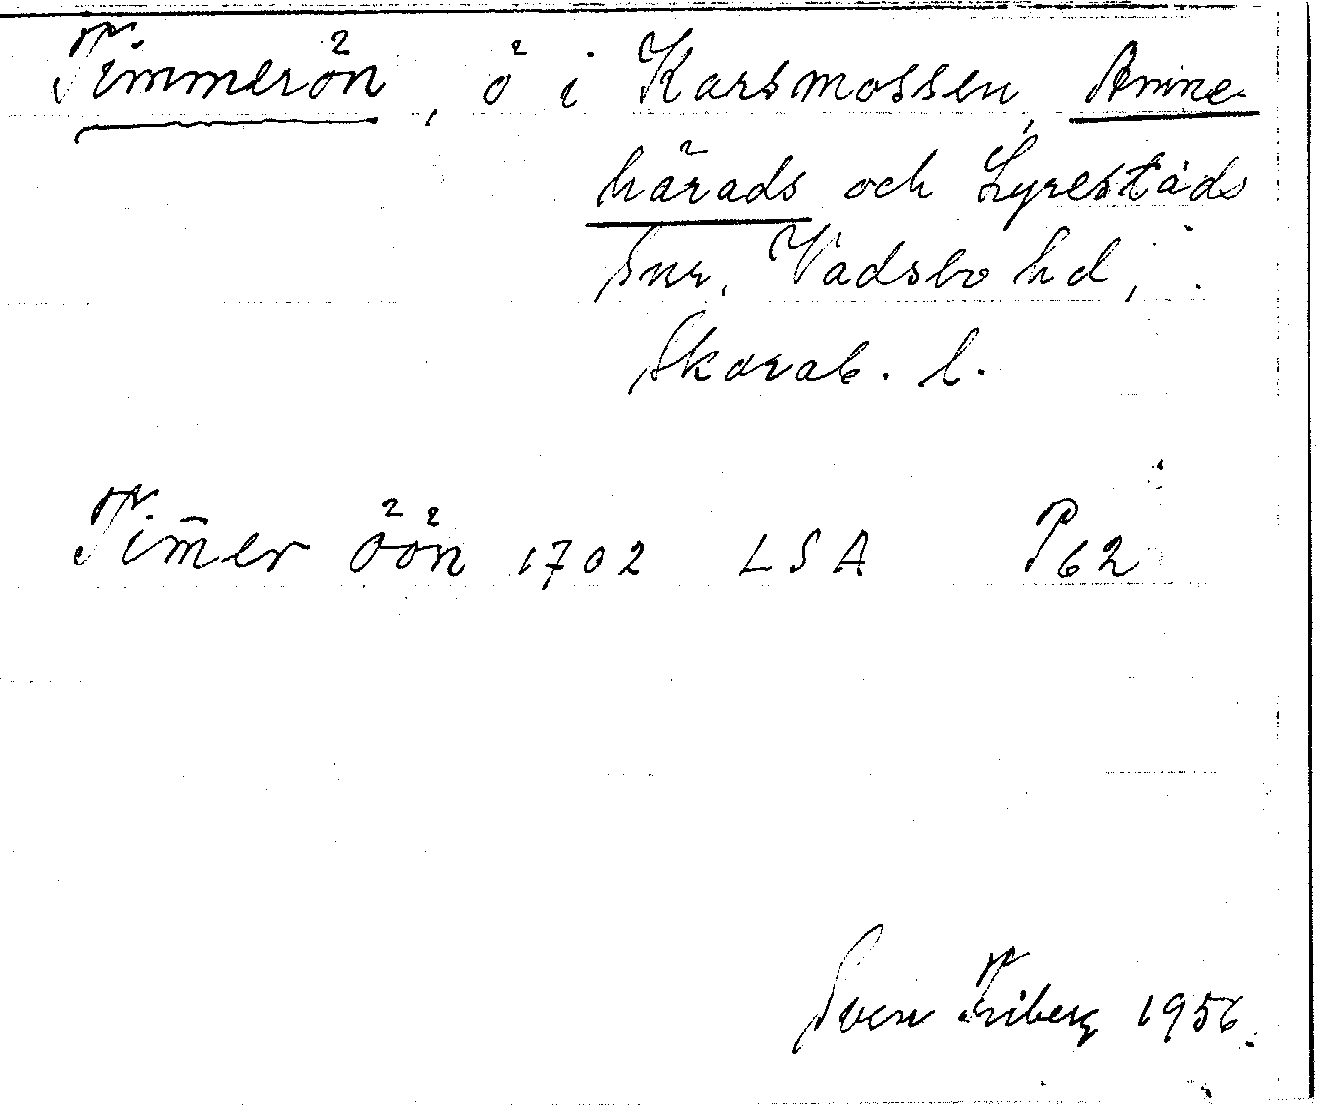 Timmerön, ö i Karsmossen, Amne-
härads och Lyrestads
snr, Vadsbo hd,
Skarab. l.
Tim̄er öön 1702 LSA P62
Sven Friberg 1956.